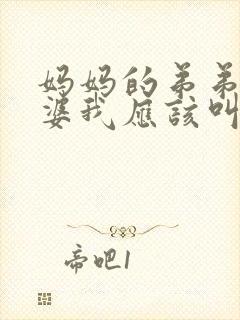 妈妈的弟弟
婆我应该叫
帝吧1